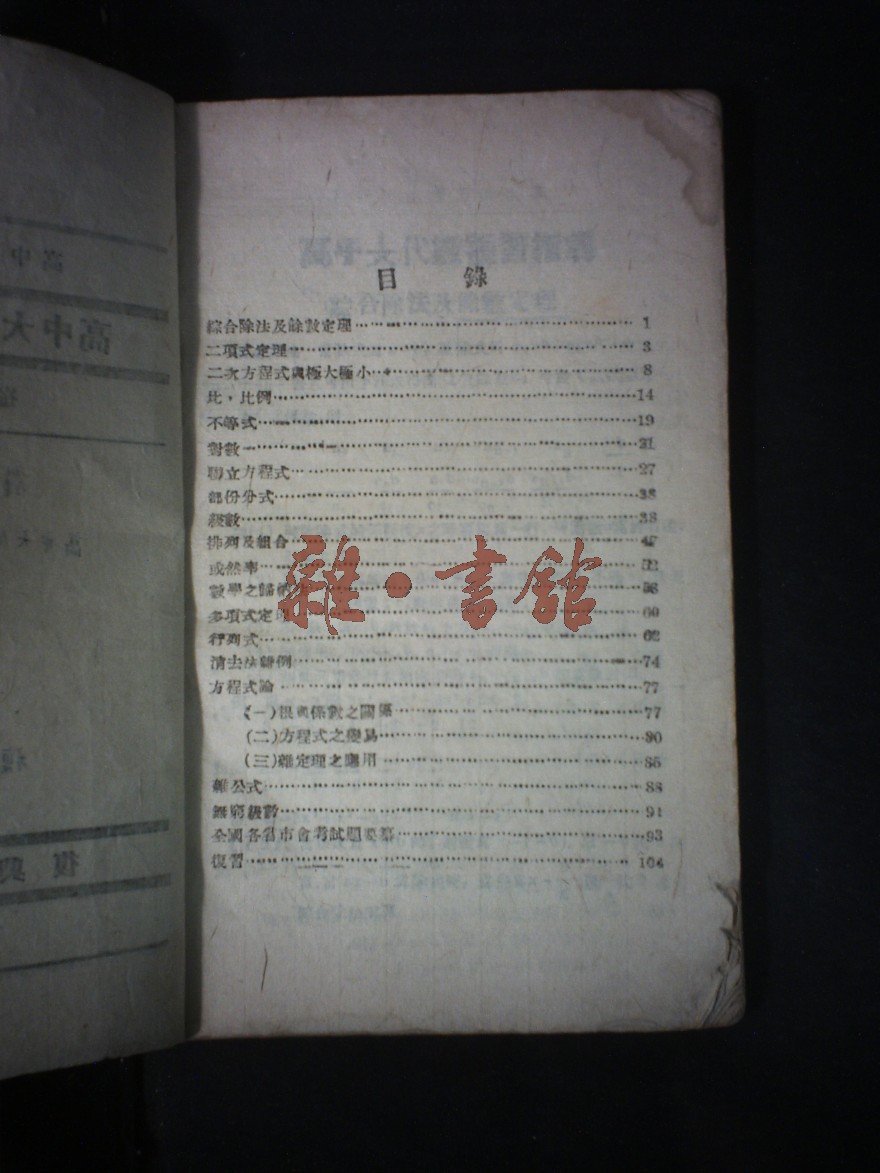 目錄
綜合除法及餘數定理 1
二項式定理 3
二次方程式與極大極小 8
比，比例 14
不等式 19
對數 21
聯立方程式 27
部份分式
級數 38
排列及組合 47
或然率 52
數學之歸納法
多項式定理 60
行列式 62
消去法雜例 74
方程式論 77
(一)根與係數之關係 77
(二)方程式之變易 80
(三)雜定理之應用 85
雜公式 88
無窮級數 91
全國各省市會考試題彙纂 93
復習 104
雜·書館
高中
高中大